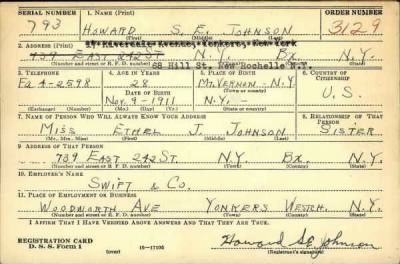 SERIAL NUMBER 1. NAME (Print) ORDER NUMBER
793 HOWARD S. E. JOHNSON 3129
(First) (Middle) (Last)
19 Riverdale Avenue, Yonkers, New York
2. ADDRESS (Print)
739 EAST 242 ST. N.Y. BX. N.Y.
68 Hill St. New Rochelle N.Y.
(Number and street or R. F. D. number) (Town) (County) (State)
3. TELEPHONE 4. AGE IN YEARS 5. PLACE OF BIRTH 6. COUNTRY OF CITIZENSHIP
Fa 4-2598 28 MT. VERNON - N.Y.
DATE OF BIRTH (Town or county) U.S.
NOV. 9 - 1911 N.Y. -
(Exchange) (Number) (Mo.) (Day) (Yr.) (State or country)
7. NAME OF PERSON WHO WILL ALWAYS KNOW YOUR ADDRESS 8. RELATIONSHIP OF THAT PERSON
MISS ETHEL J. JOHNSON SISTER
(Mr., Mrs., Miss) (First) (Middle) (Last)
9. ADDRESS OF THAT PERSON
739 EAST 242 ST. N.Y. BX. N.Y.
(Number and street or R. F. D. number) (Town) (County) (State)
10. EMPLOYER'S NAME
SWIFT & CO.
11. PLACE OF EMPLOYMENT OR BUSINESS
WOODWORTH AVE YONKERS WESTCH. N.Y.
(Number and street or R. F. D. number) (Town) (County) (State)
I AFFIRM THAT I HAVE VERIFIED ABOVE ANSWERS AND THAT THEY ARE TRUE.
REGISTRATION CARD
D. S. S. FORM 1 (over) 16-17105
Howard S E Johnson
(Registrant's signature)